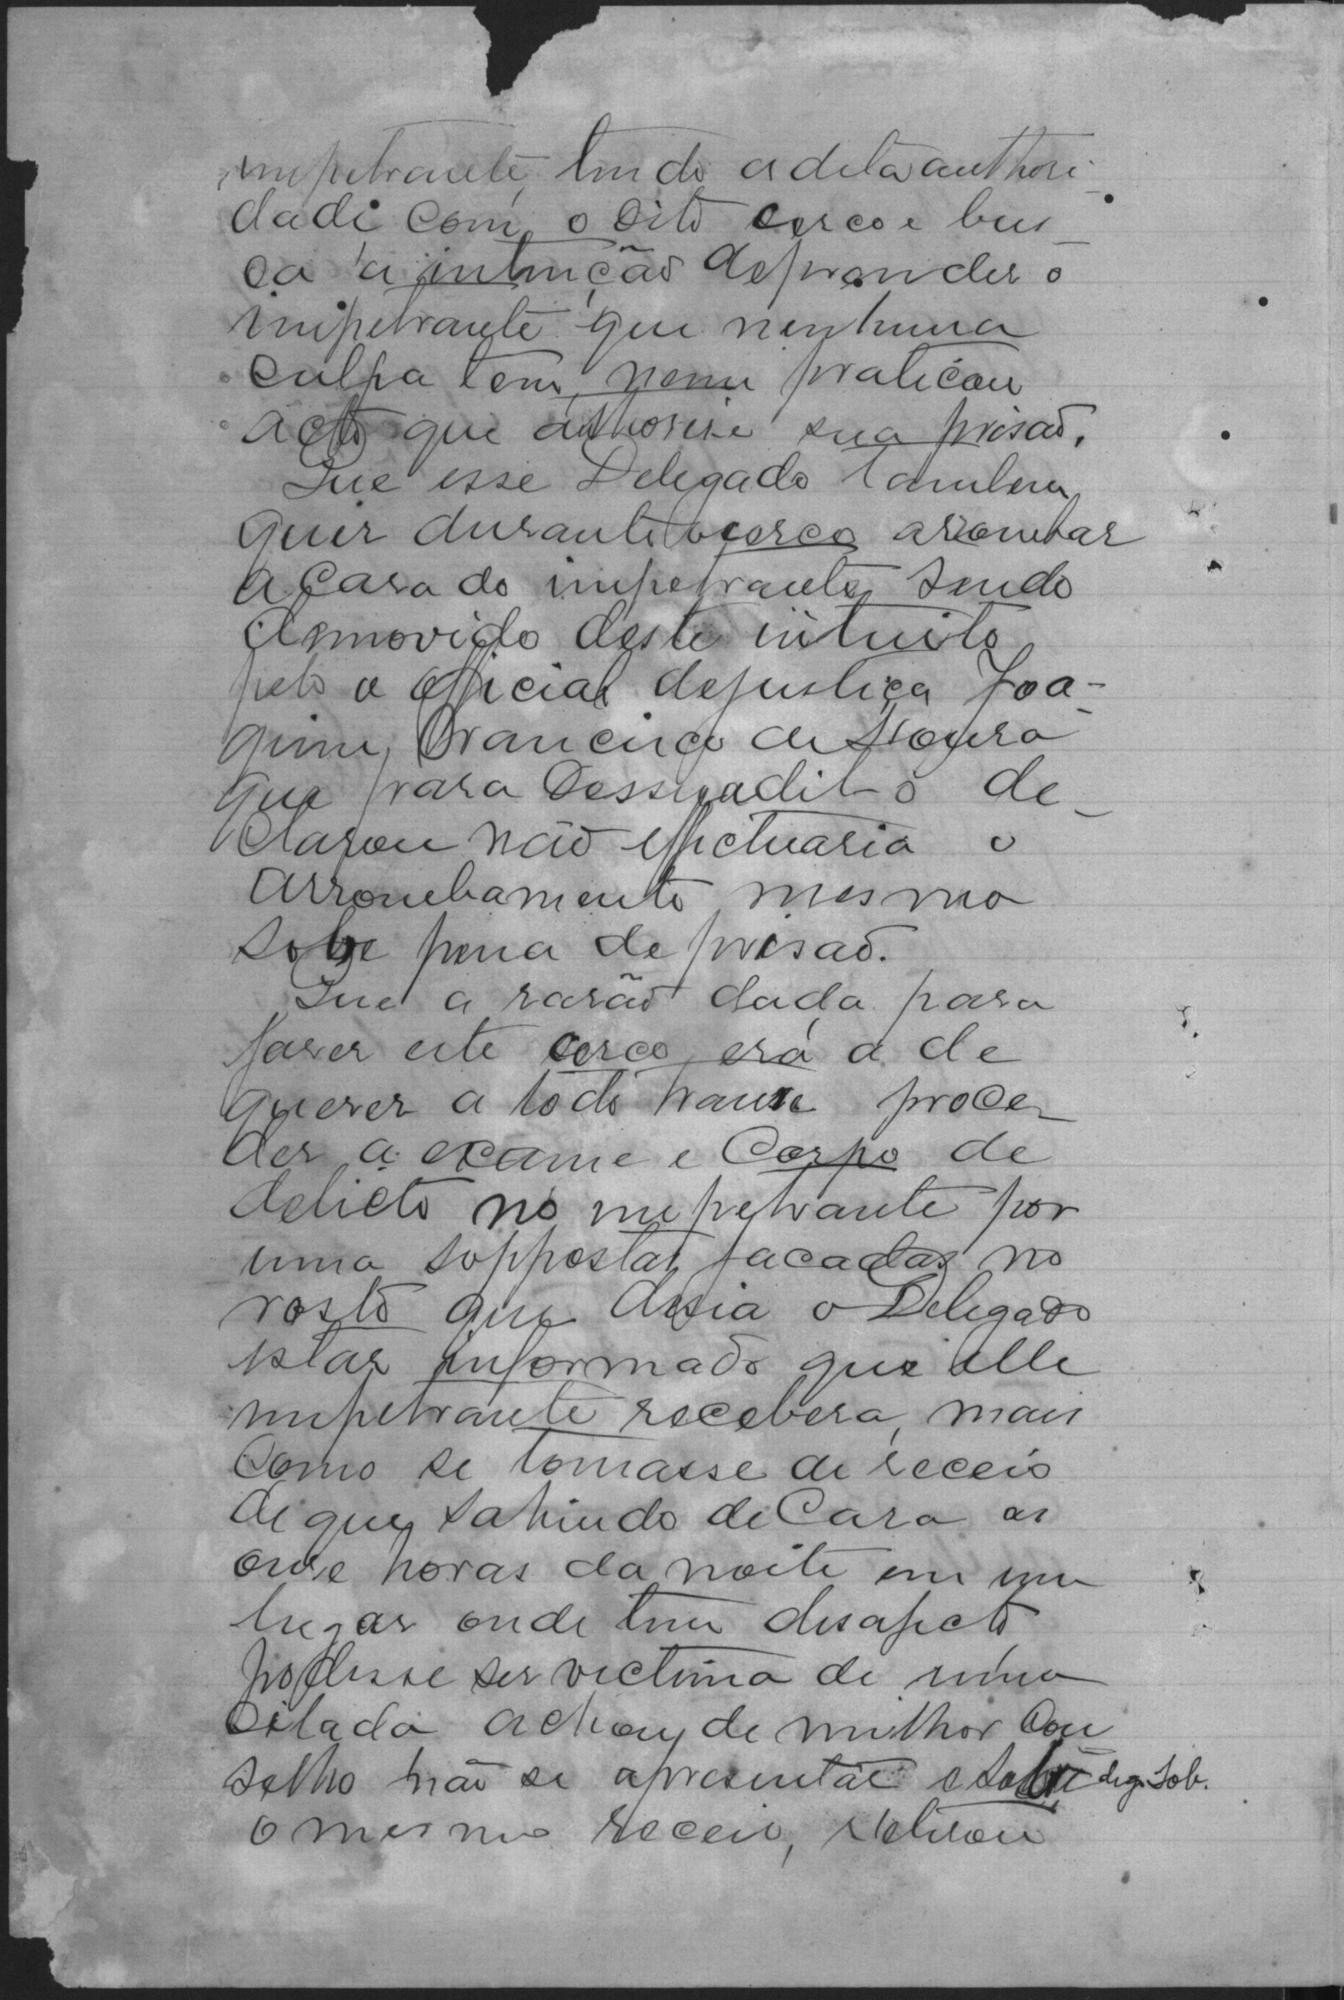 impetrante, tendo a dita authori-
dade com o dito cerco e bus
ca a intenção de prender o
impetrante que nenhuma
culpa tem, nem praticou
acto que authorise sua prisaõ.
Que esse Delegado tambem
quis durante o cerco arrombar
a casa do impetrante, sendo
demovido deste intuito
pelo o official de justiça Joa-
quim Francisco de
que para dessuadil-o de-
clarou não effectuaria o
arrombamento mesmo
sobe pena de prisaõ.
Que a rasão dada para
faser este cerco era a de
querer a todo transe proce-
der a exame e Corpo de
delicto no impetrante por
uma soppostas facadas no
rosto que disia o Delegado
estar informado que elle
impetrante recebera, mais
como se tomasse de receio
de que sahindo de Casa as
onse horas da noite em um
lugar onde tem desafecto
podesse ser victima de uma
cilada achou de milhor Con
selho não se apresentar e sobre digo Sob.
o mesmo receio, retirou